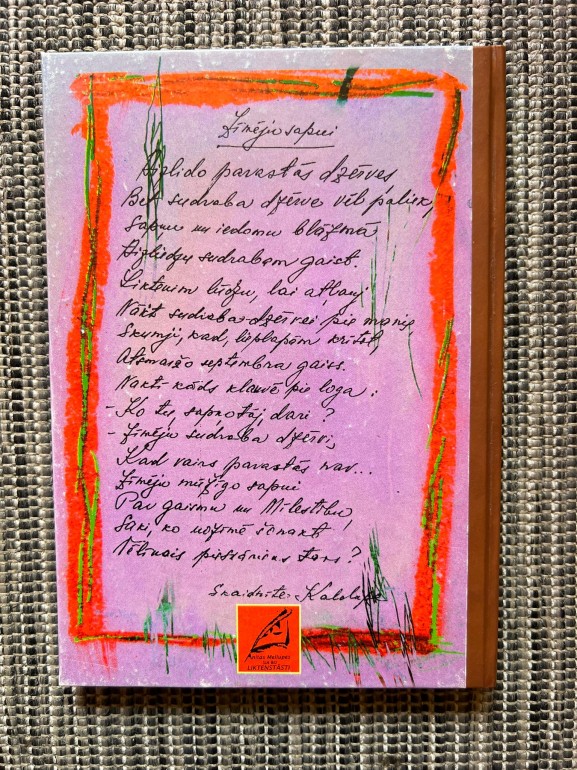 Zīmēju sapni
Aizlido parastās dzērves,
Bet sudraba dzērve vēl paliek,
Sapņu un iedomu blāzmā
Aizliedzu sudrabam gaist.
Liktenim lūdzu, lai atļauj
Nākt sudraba dzērvei pie manis
Skumji, kad, lieplapām krītot,
Atsmaržo septembra gaiss.
Nakt kāds klauvē pie loga:
- Ko tu, sapņotāj, dari?
- Zīmēju sudraba dzērvi,
Kad vairs parastās nav...
Zīmēju mūžīgo sapni
Par gaismu un Mīlestību,
Saki, ko nozīmē ienākt
Vēlīnais pieskāriens Tavs?
Skaidrīte Kaldupe
Anitas Mellupes
LIKTEŅSTĀSTI